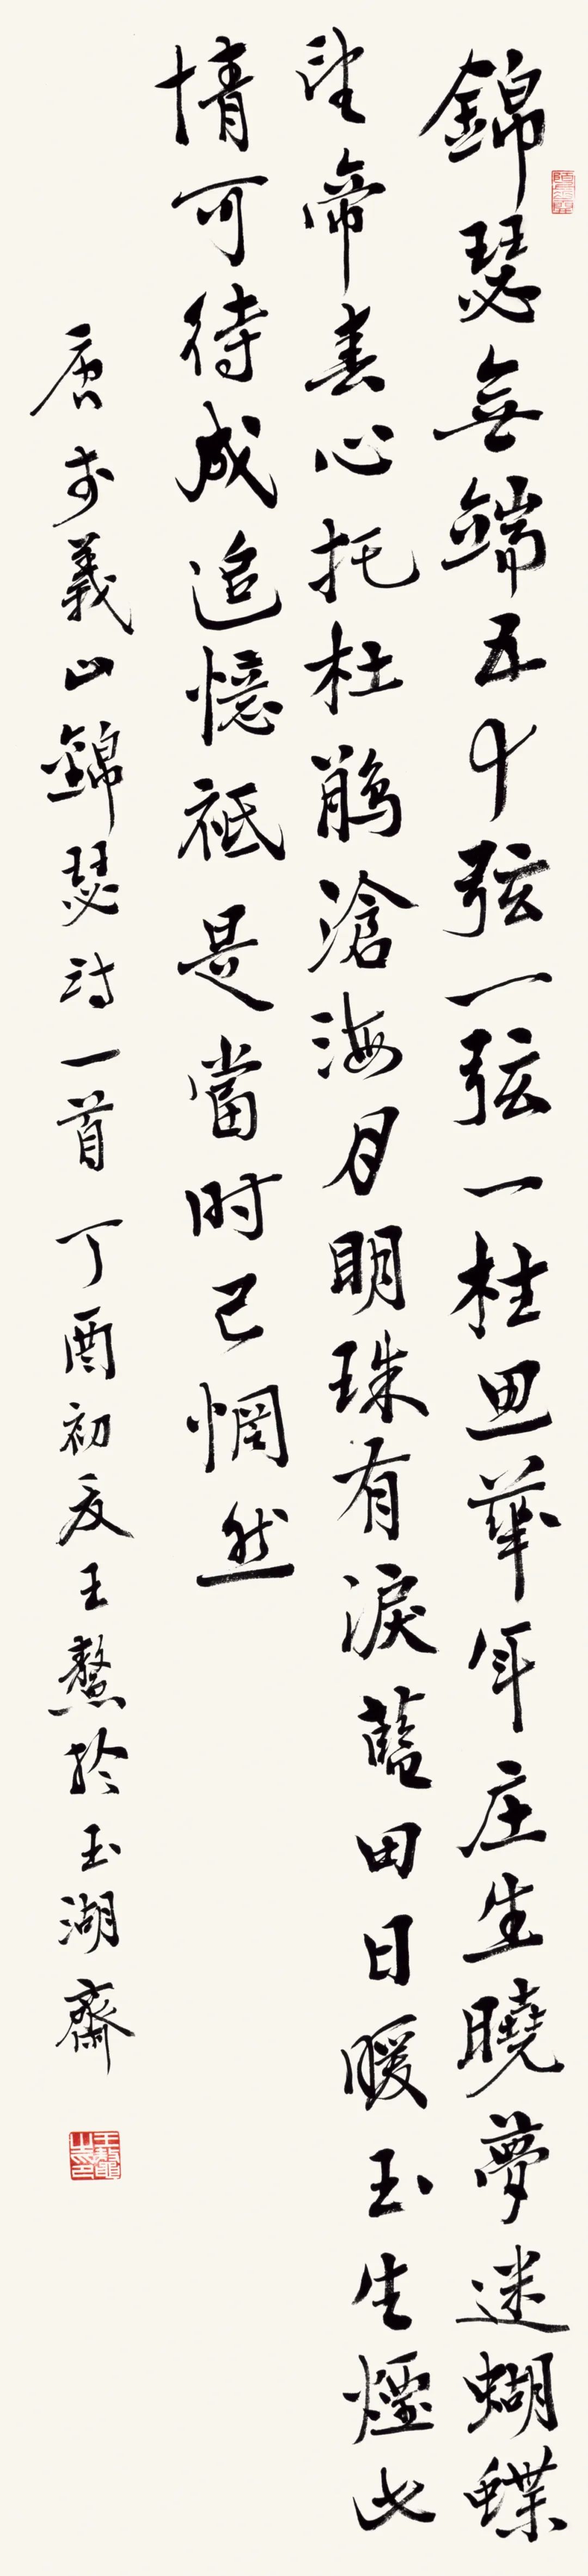 錦瑟無端五十弦一弦一柱思華年庄生曉夢迷蝴蝶
望帝春心托杜鹃滄海月明珠有淚藍田日暖玉生煙此
情可待成追憶祗是當时已惘然
唐李義山錦瑟詩一首丁酉初夏王鰲於玉湖齋